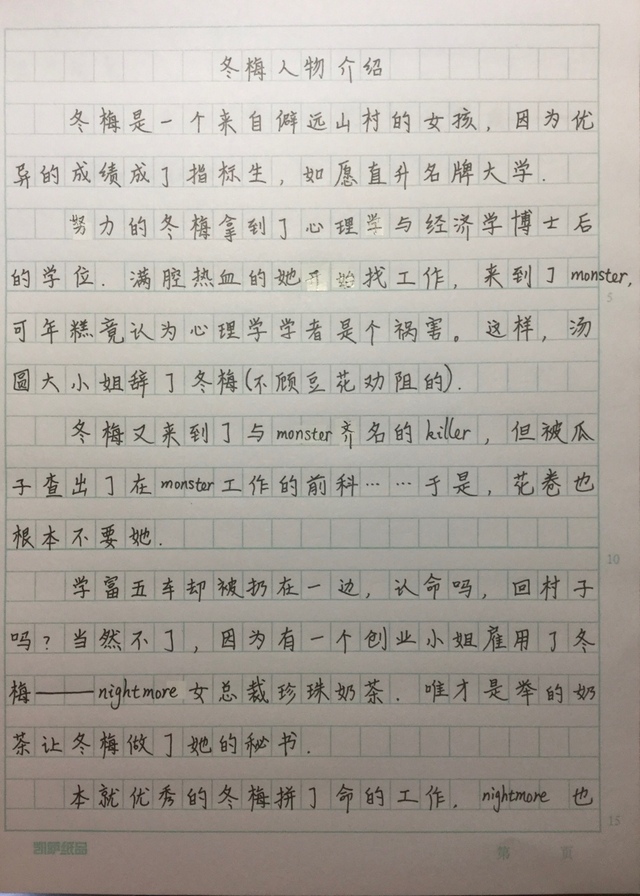 冬梅人物介绍
冬梅是一个来自僻远山村的女孩，因为优
异的成绩成了指标生，如愿直升名牌大学.
努力的冬梅拿到了心理学与经济学博士后
的学位. 满腔热血的她开始找工作，来到了monster,
5
可年糕竟认为心理学学者是个祸害。这样，汤
圆大小姐辞了冬梅(不顾豆花劝阻的).
冬梅又来到了与monster齐名的killer，但被瓜
子查出了在monster工作的前科……于是，花卷也
根本不要她.
10
学富五车却被扔在一边，认命吗，回村子
吗？当然不了，因为有一个创业小姐雇用了冬
梅——nightmore女总裁珍珠奶茶. 唯才是举的奶
茶让冬梅做了她的秘书.
本就优秀的冬梅拼了命的工作. nightmore 也
15
凯萨纸品
第 页